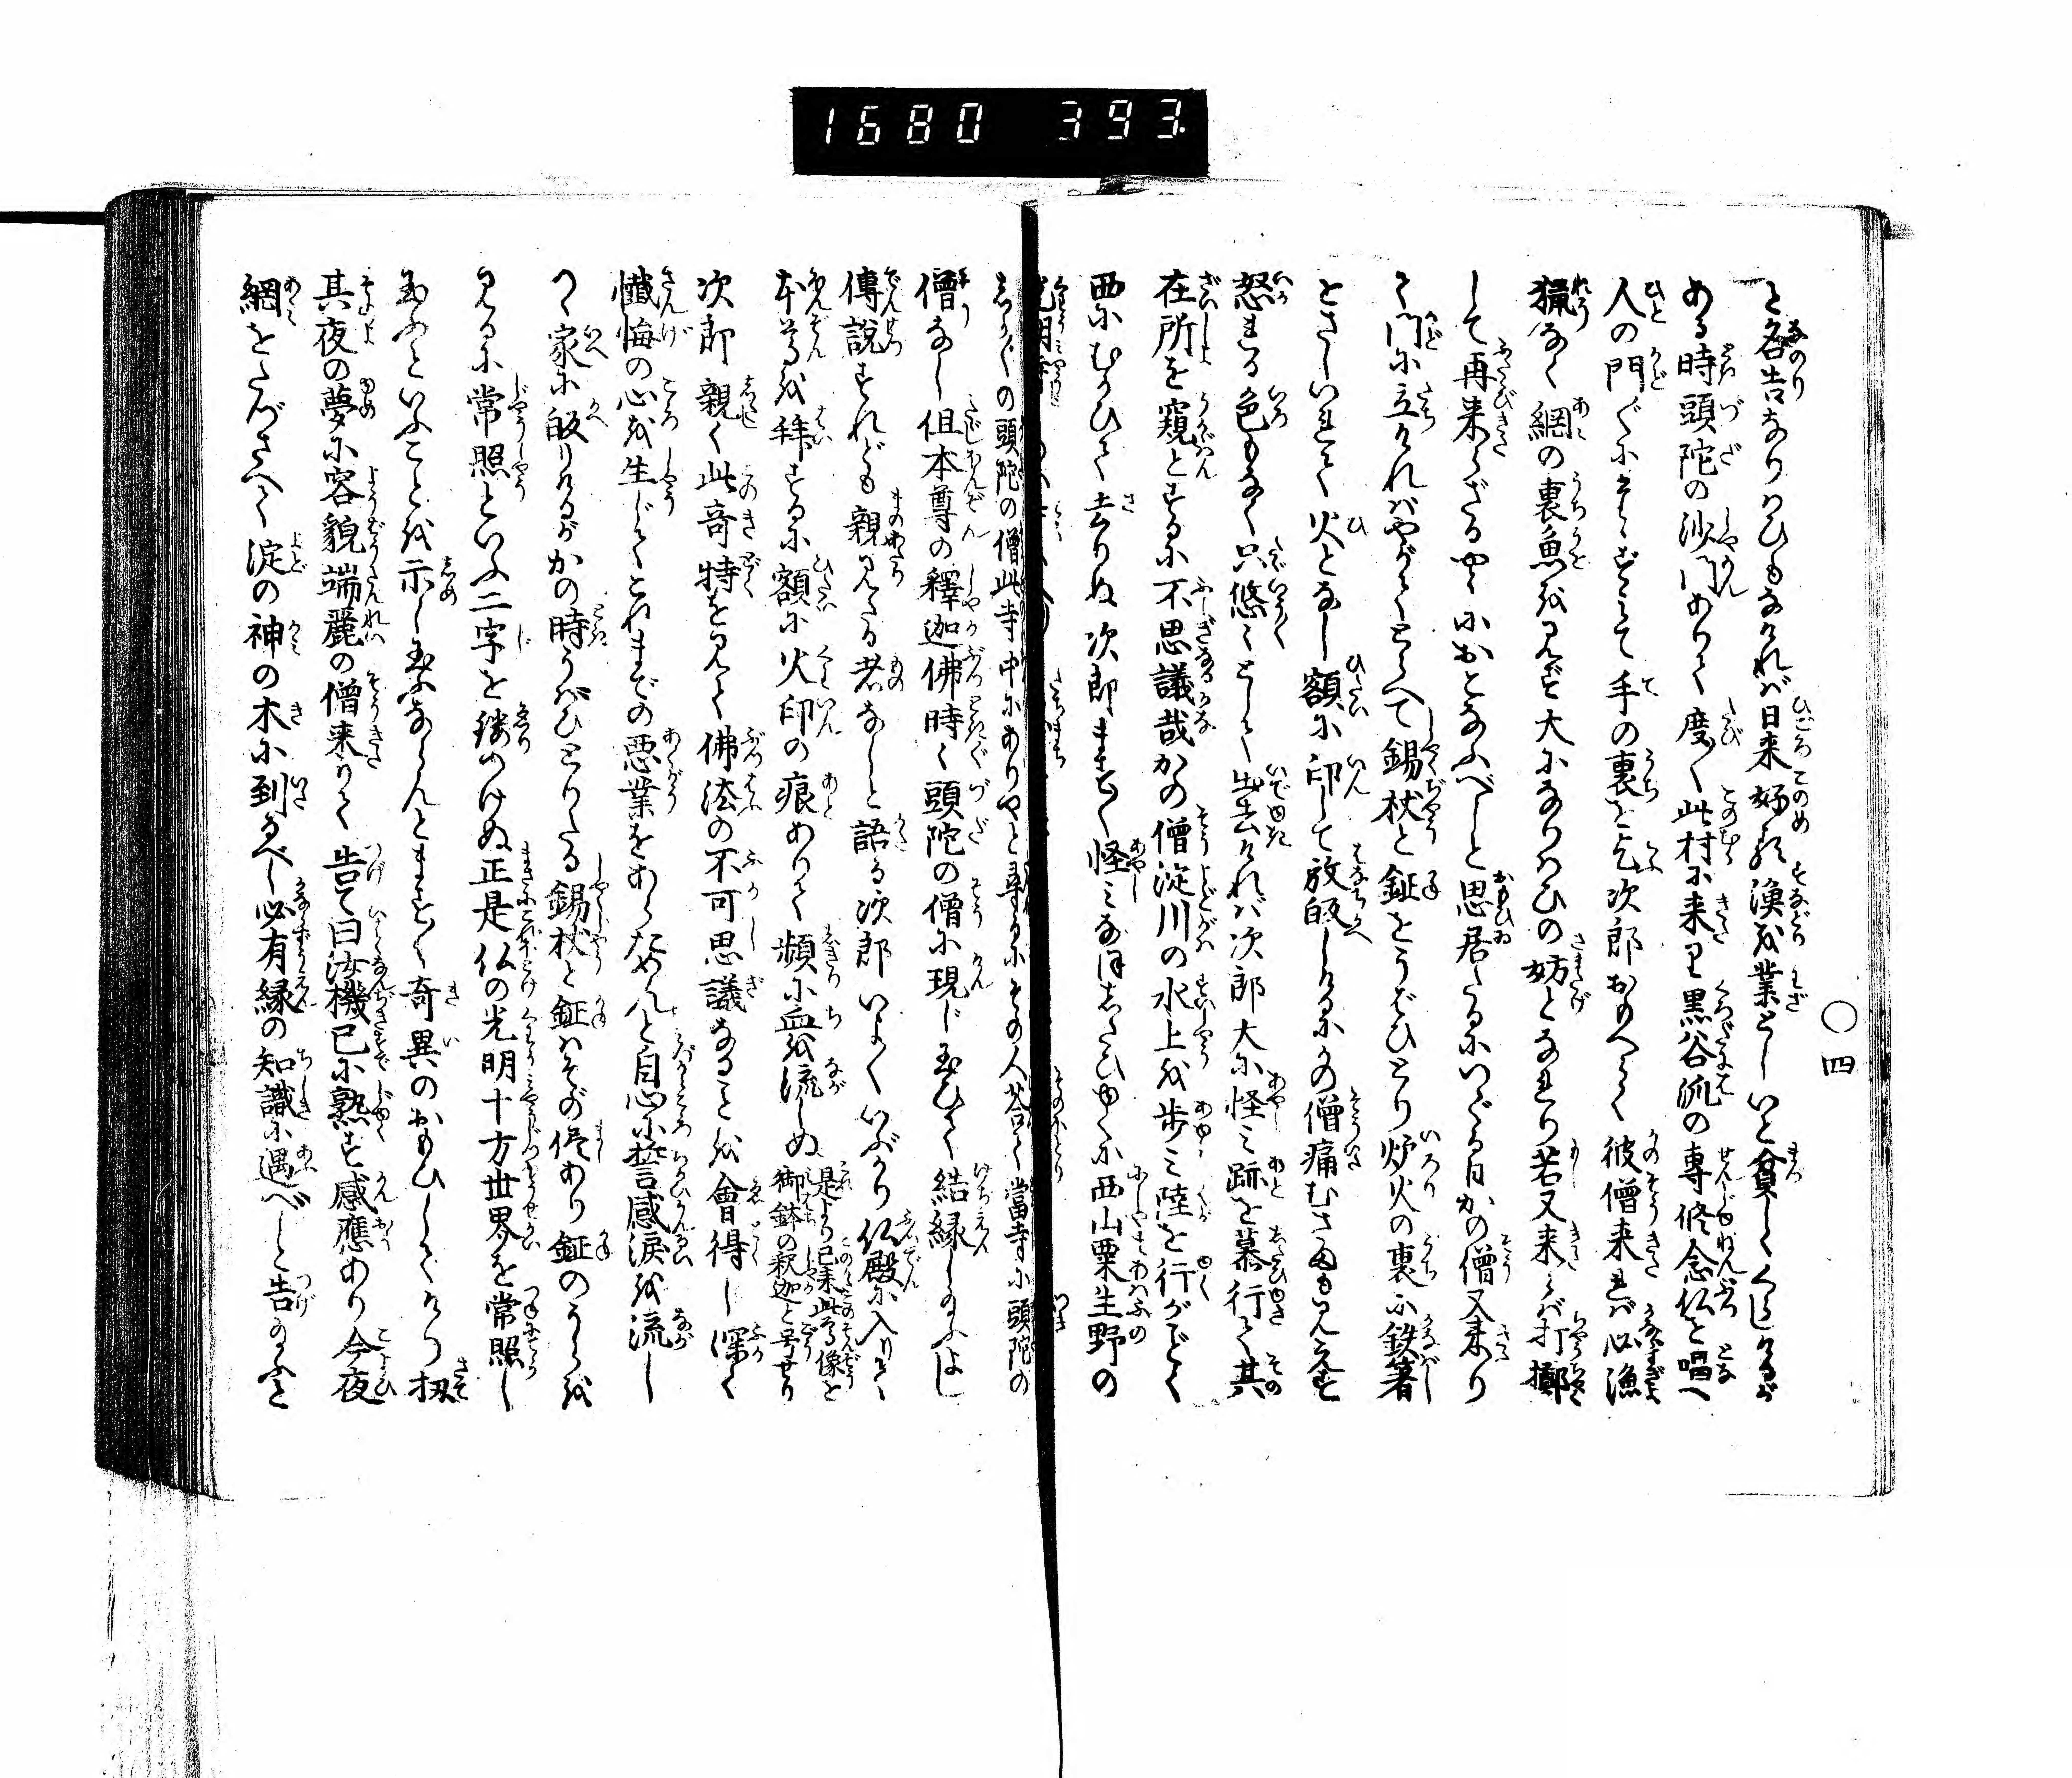 1680 393
○四
と名告なりけひもなけれバ日来好て漁を業としいと貧しくくらしけるが
ある時頭陀の沙門ありて度〱此村に来り黒谷流の専修念仏を唱へ
人の門〲にたゝずミて手の裏を乞次郎おもへらく彼僧来れバ必漁
猟なく網の裏魚を見ず大になりけひの妨となれり若又来らバ打擲
して再来らざるやうにおとなふべしと思居たるにいでる日かの僧又来り
て門に立けれバやがてとらへて錫杖と鉦とをうばひとり炉火の裏に鉄箸
をさしいれて火となし額に印して放皈しけるにかの僧痛むさまも見えず
怒れる色もなく只悠〻として出去けれバ次郎大に怪ミ跡を慕行て其
在所を窺とするに不思議哉かの僧淀川の水上を歩ミ陸を行がごとく
西にむかひて去りぬ次郎ます〱怪ミなほしたひゆくに西山粟生野の
光明寺
しか〲の頭陀の僧此寺中にありやと尋るにその人答て當寺に頭陀の
僧なし但本尊の釋迦佛時〻頭陀の僧に現じ玉ひて結縁し給ふよし
傳說すれども親見たる者なしと語る次郎いよ〱いぶかり仏殿に入りて
本尊を拜するに額に火印の痕ありて頻に血を流しぬ是より已来此尊像を御鉢の釈迦と号せり
次郎親く此奇特を見て佛法の不可思議なることを會得し深く
懺悔の心を生じてこれまでの悪業をあらためんと自心に誓感涙を流し
つゝ家に皈りけるがかの時うばひとりたる錫杖と鉦ハそのまゝ侭あり鉦のうらを
見るに常照といふ二字を鏤つけぬ正是仏の光明十方世界を常照し
玉ふといふことを示し玉ふならんとます〱奇異のおもひしてけり扨
其夜の夢に容貌端麗の僧来りて告て曰汝機已に熟す感應あり今夜
網をたづさへて淀の神の木に到るべし必有縁の知識に遇べしと告給ふと